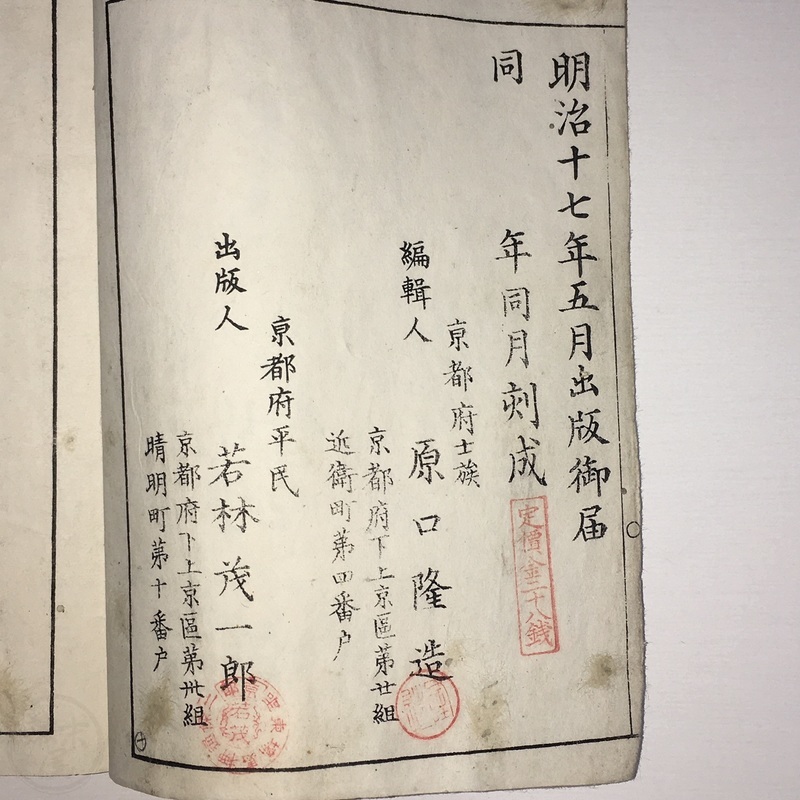 明治十七年五月出版御届
同年同月刻成
定價金三十八銭
京都府士族
編輯人 原口隆造
京都府下上京區第廿組
近衛町第四番户
京都府平民
出版人 若林茂一郎
京都府下上京區第卅組
晴明町第十番户